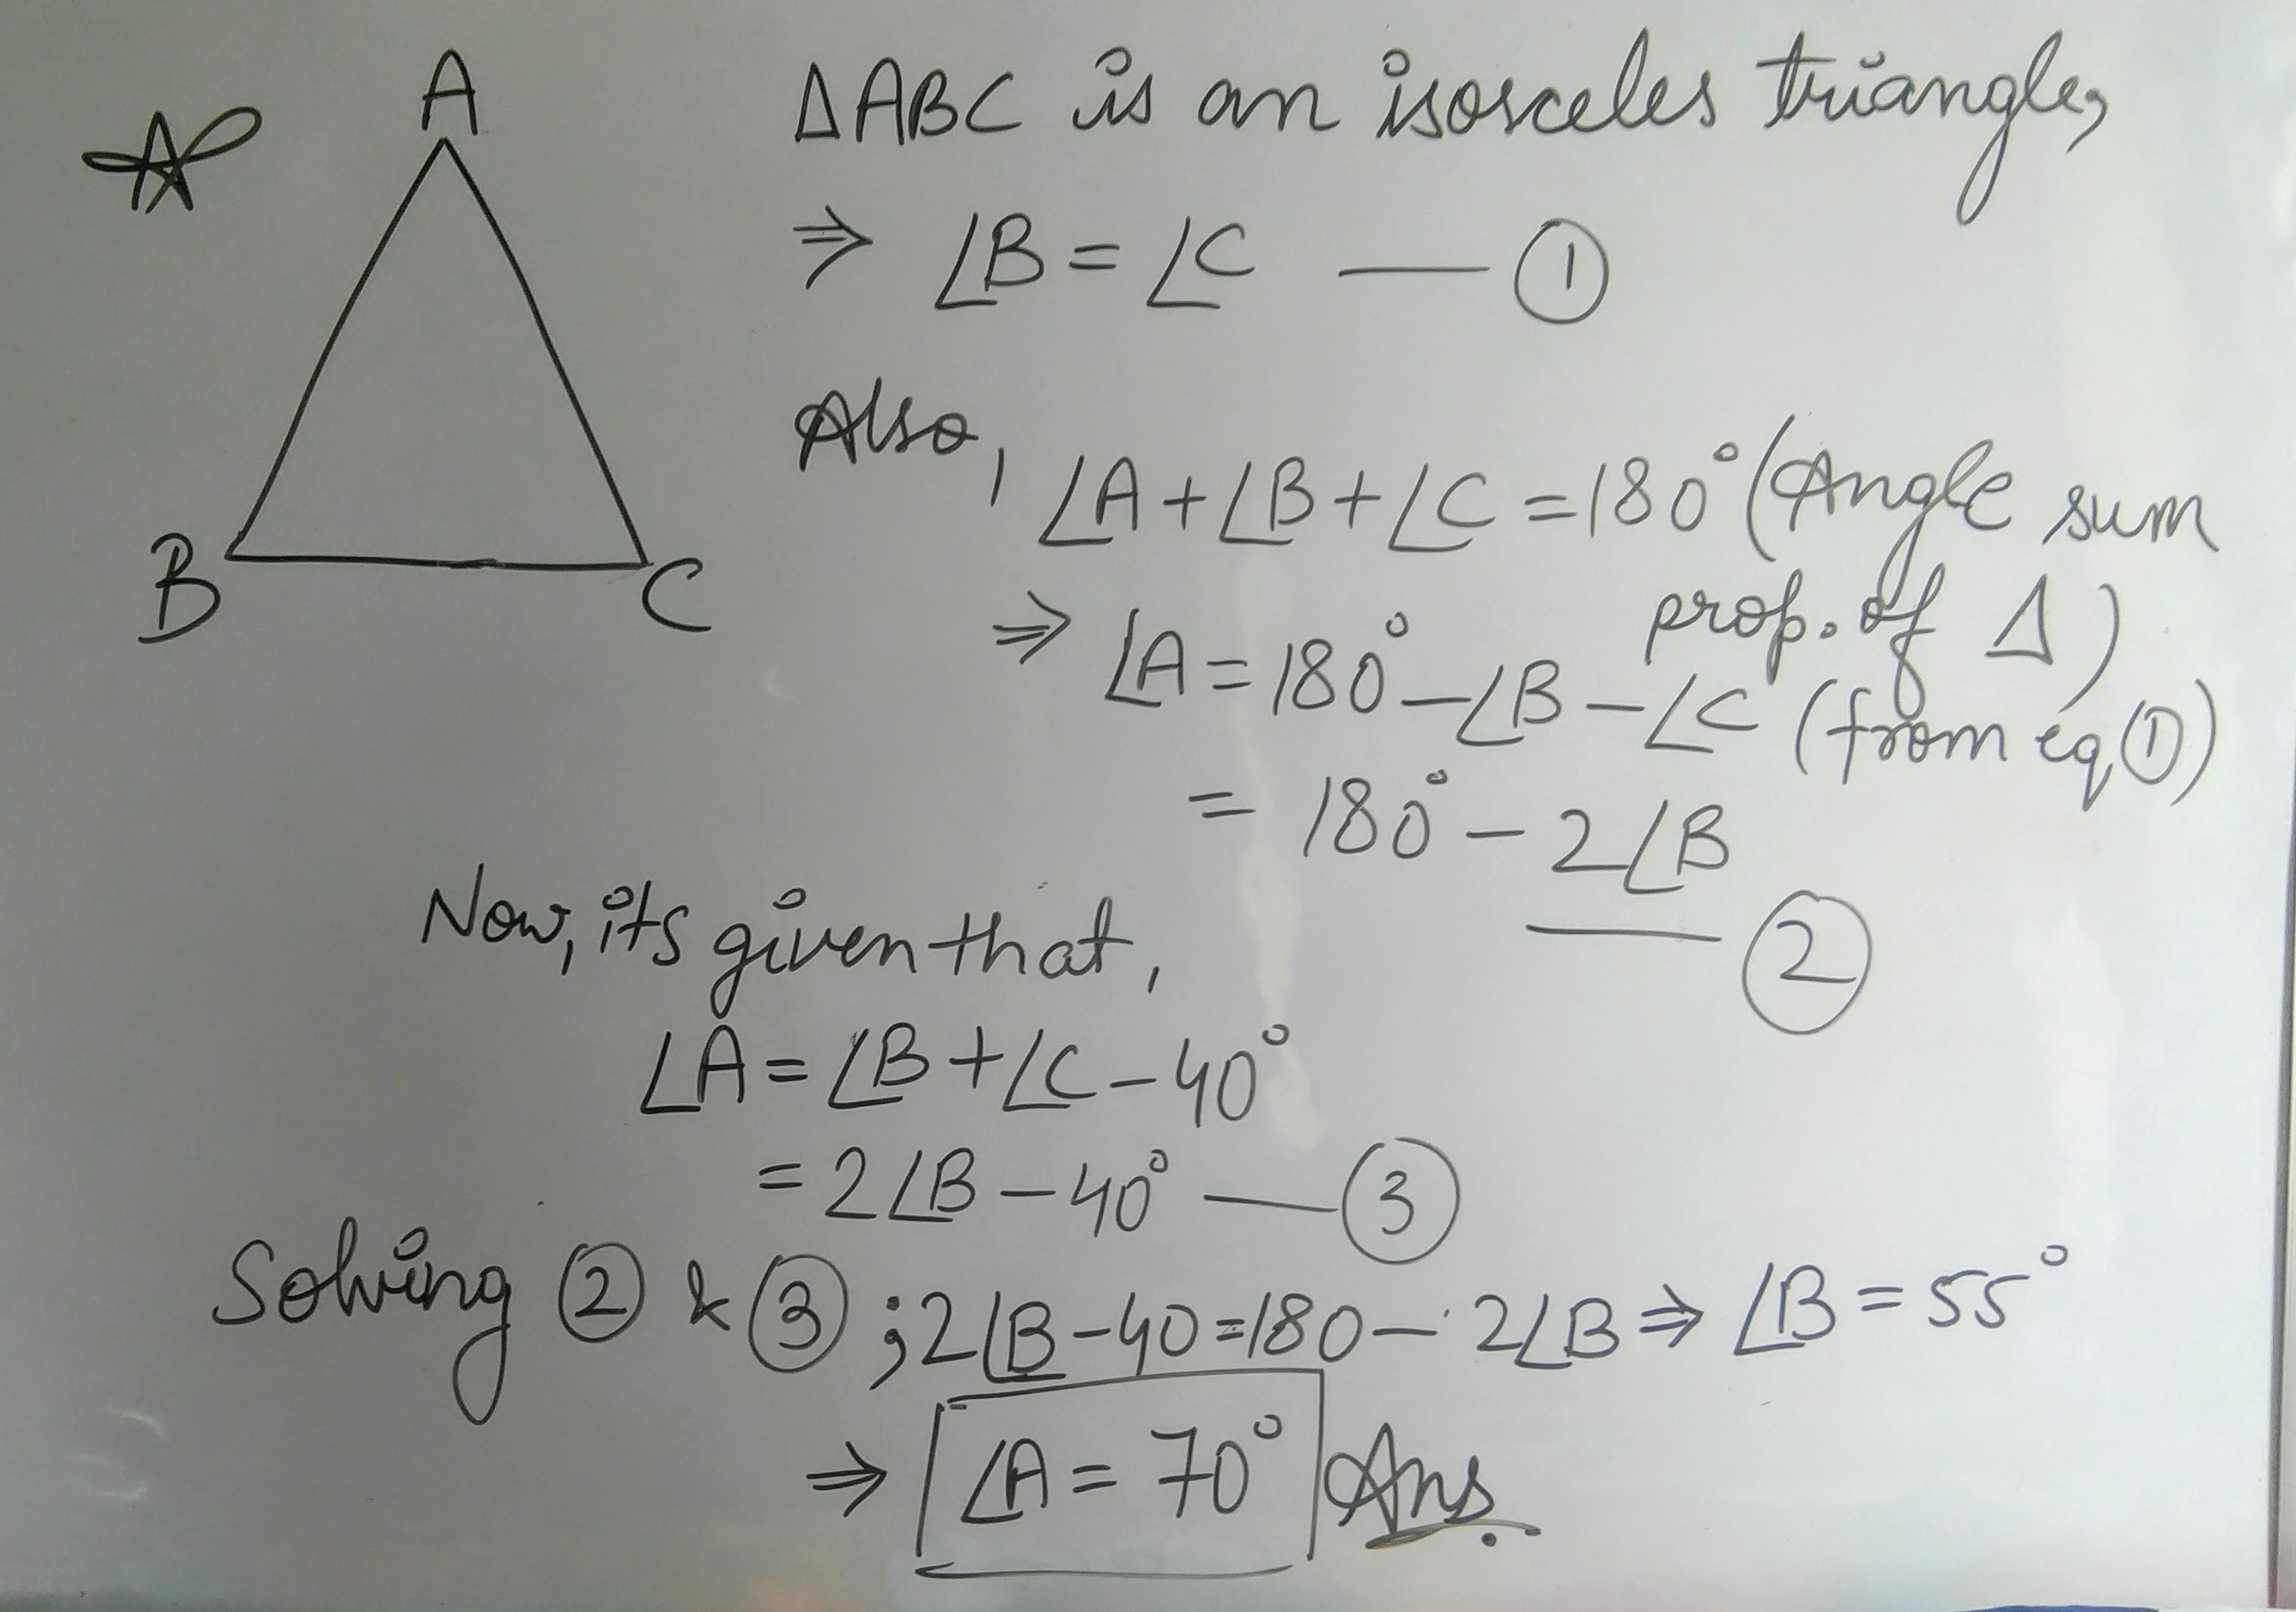 A
B
C
ΔABC is an isosceles triangle,
⇒ ∠B = ∠C — ①
Also, ∠A + ∠B + ∠C = 180° (Angle sum
prop. of Δ)
⇒ ∠A = 180° – ∠B – ∠C (from eq ①)
= 180° – 2∠B
— ②
Now, its given that,
∠A = ∠B + ∠C – 40°
= 2∠B – 40° — ③
Solving ② & ③ ; 2∠B – 40 = 180 – 2∠B ⇒ ∠B = 55°
⇒ ∠A = 70° Ans.